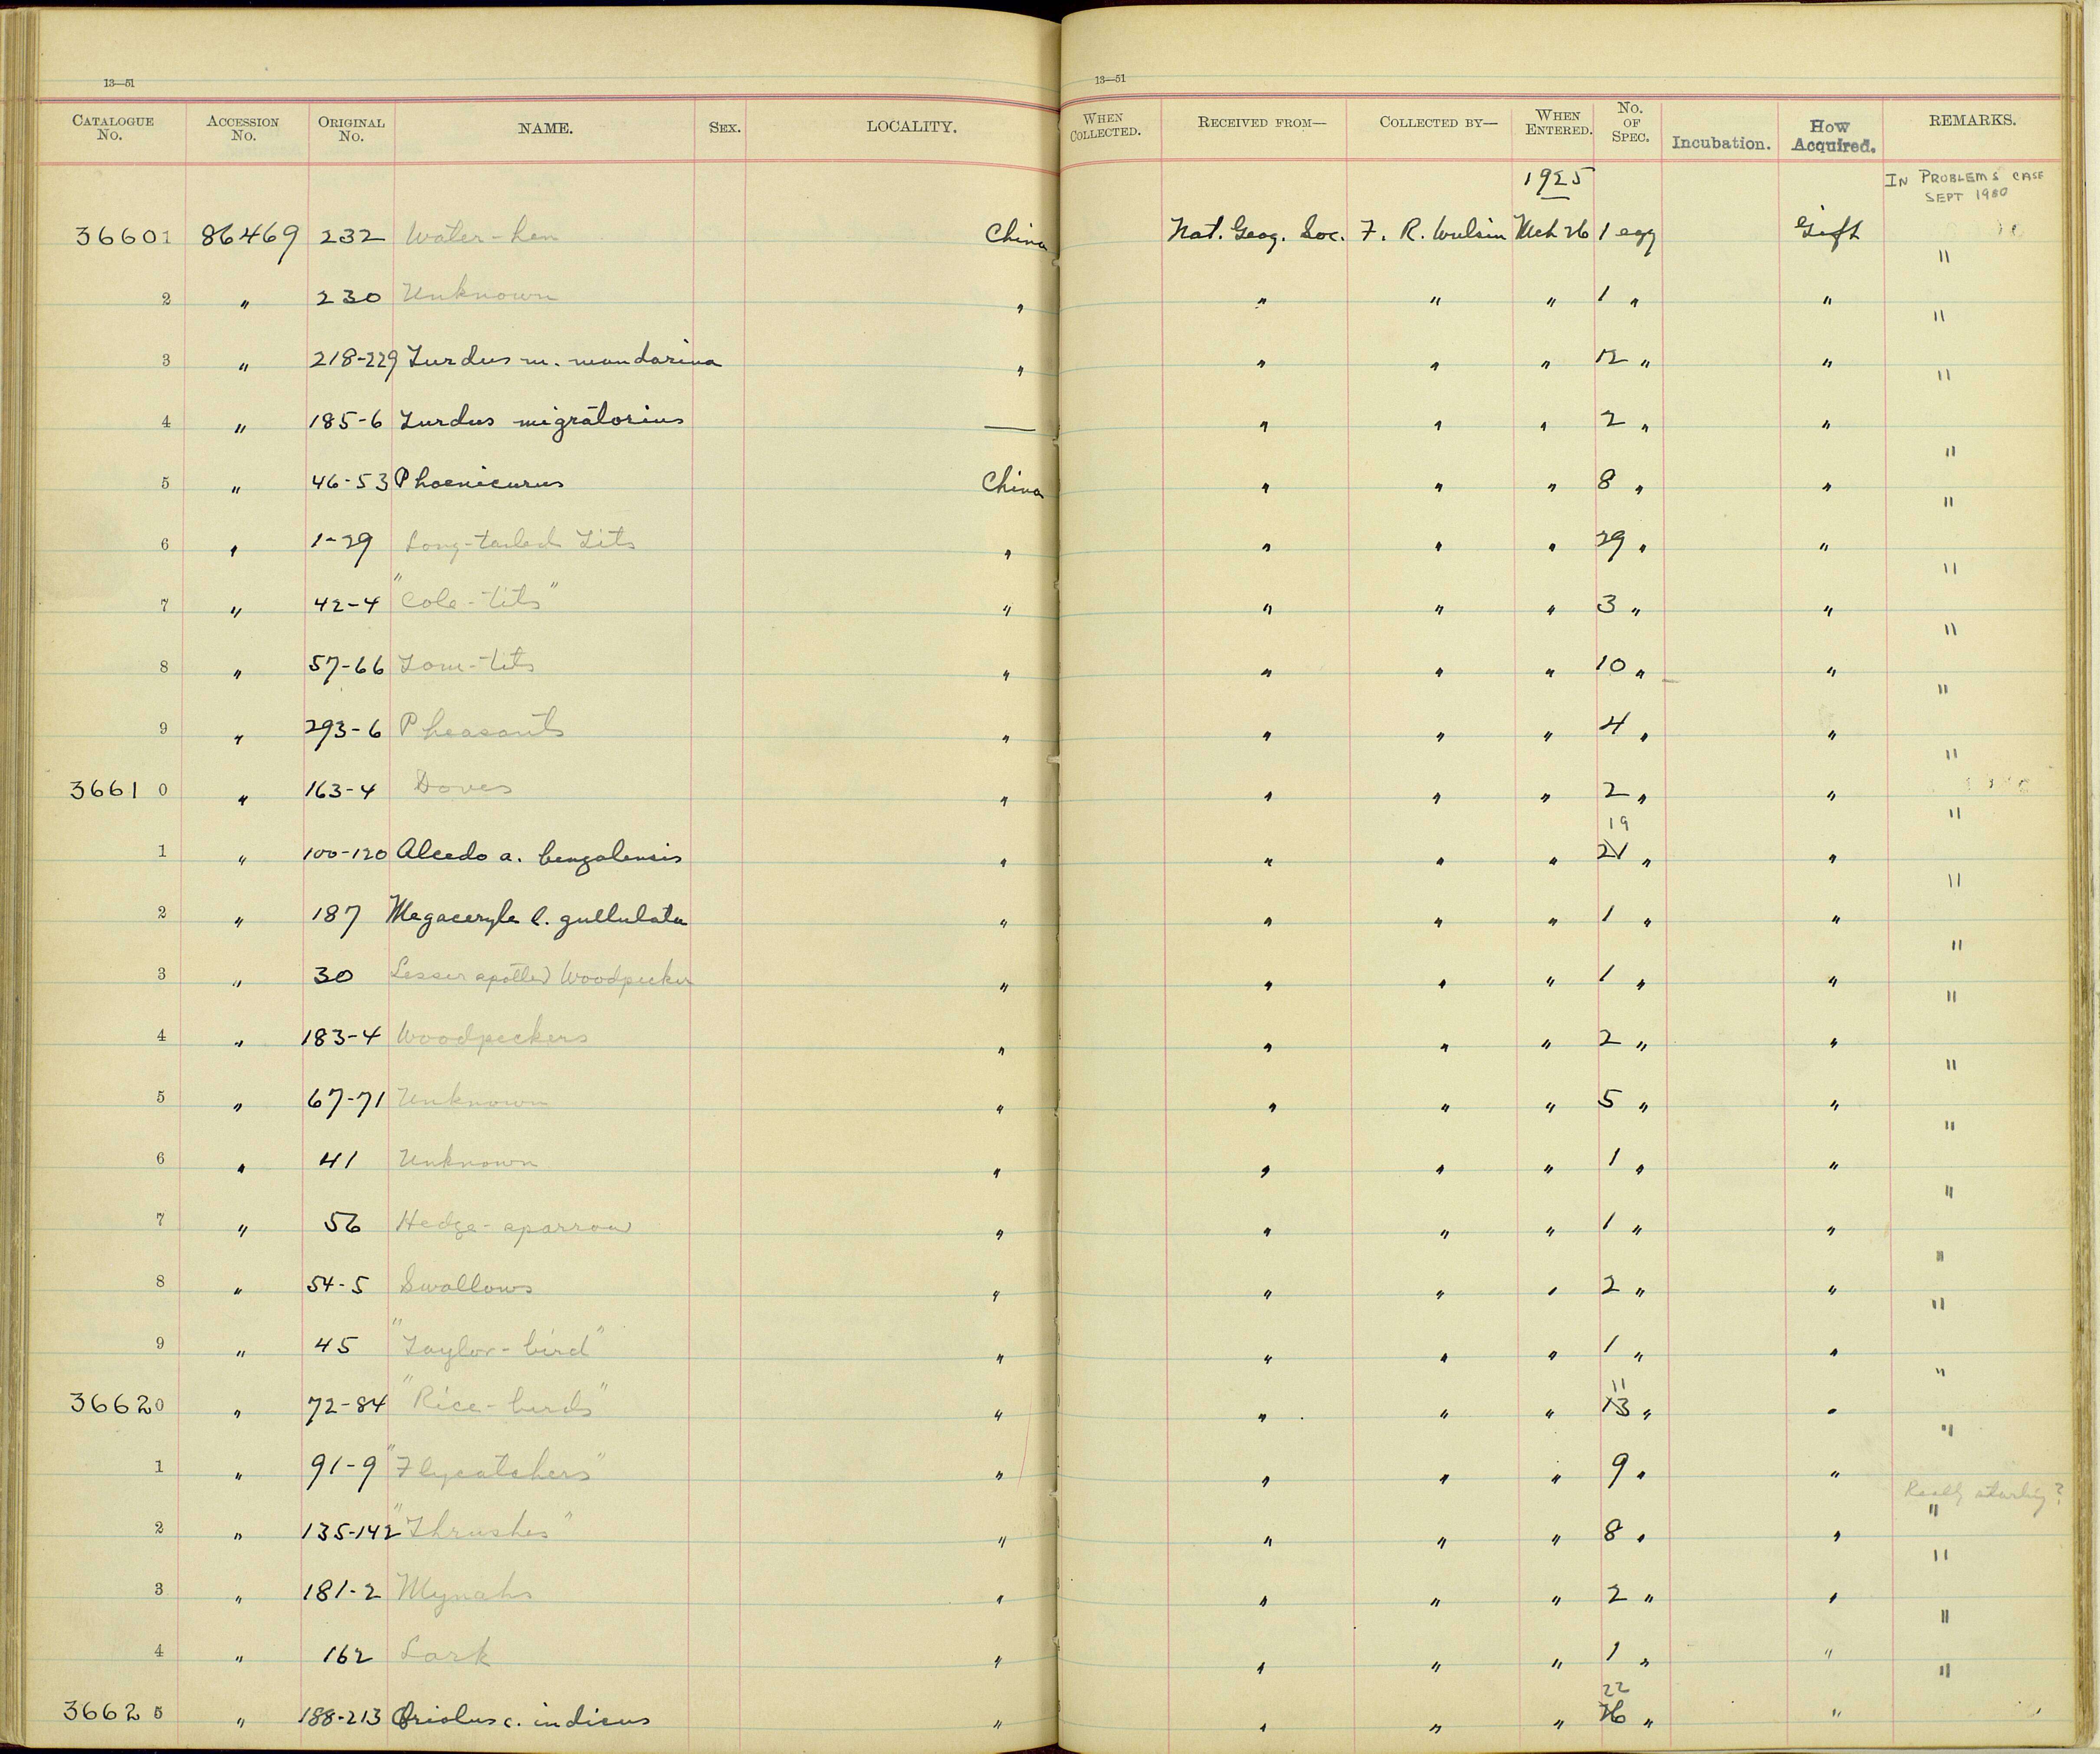 13—51 13—51
CATALOGUE No. ACCESSION No. ORIGINAL No. NAME. SEX. LOCALITY. WHEN COLLECTED. RECEIVED FROM— COLLECTED BY— WHEN ENTERED. No. OF SPEC. Incubation. How Acquired. REMARKS.
1925 IN PROBLEMS CASE SEPT 1980
36601 86469 232 Water-hen China Nat. Geog. Soc. F. R. Wulsin Mch 26 1 egg Gift "
2 " 230 Unknown " " " " 1 " " "
3 " 218-229 Turdus m. mandarina " " " " 12 " " "
4 " 185-6 Turdus migratorius — " " " 2 " " "
5 " 46-53 Phoenicurus China " " " 8 " " "
6 " 1-29 Long-tailed Tits " " " " 29 " " "
7 " 42-4 "Cole-tits" " " " " 3 " " "
8 " 57-66 Tom-tits " " " " 10 " " "
9 " 293-6 Pheasants " " " " 4 " " "
36610 " 163-4 Doves " " " " 2 " " "
19
1 " 100-120 Alcedo a. bengalensis " " " " 21 " " "
2 " 187 Megaceryle l. gullulata " " " " 1 " " "
3 " 30 Lesser spotted Woodpecker " " " " 1 " " "
4 " 183-4 Woodpeckers " " " " 2 " " "
5 " 67-71 Unknown " " " " 5 " " "
6 " 41 Unknown " " " " 1 " " "
7 " 56 Hedge-sparrow " " " " 1 " " "
8 " 54-5 Swallows " " " " 2 " " "
9 " 45 "Taylor-bird" " " " " 1 " " "
11
36620 " 72-84 "Rice-birds" " " " " 13 " " "
1 " 91-9 "Flycatchers" " " " " 9 " "
Really starling?
2 " 135-142 "Thrushes" " " " " 8 " " "
3 " 181-2 Mynahs " " " " 2 " " "
4 " 162 Lark " " " " 1 " " "
22
36625 " 188-213 Oriolus c. indicus " " " " 26 " "